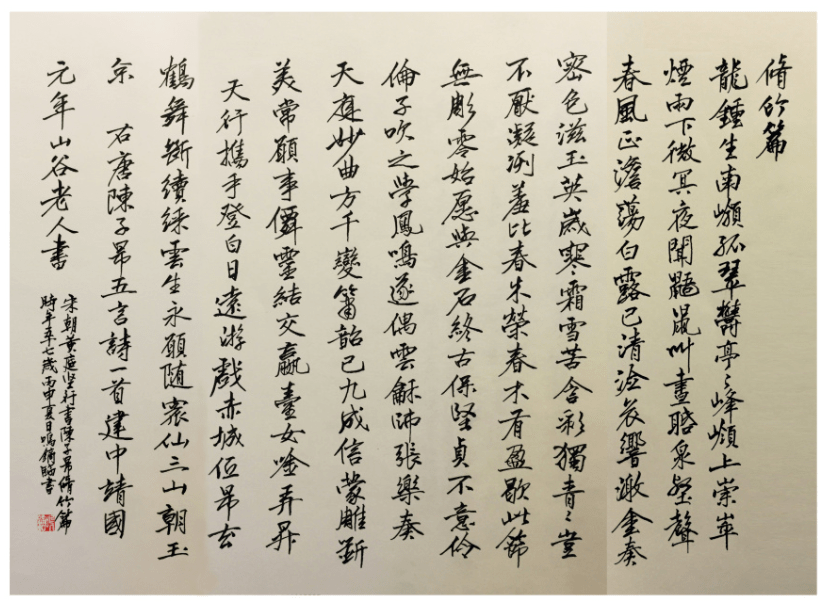 脩竹篇
龍鍾生南嶺孤翠欝亭〻峰嶺上崇崒
煙雨下微冥夜聞鼯鼠叫晝聒泉壑聲
春風正澹蕩白露已清泠哀響激金奏
密色滋玉英歲寒霜雪苦含彩獨青〻豈
不厭凝冽羞比春木榮春木有盈歇此節
無彫零始愿與金石終古保堅貞不意伶
倫子吹之學鳳鳴遂偶雲龢師張樂奏
天庭妙曲方千變簫韶已九成信蒙雕斲
美常願事僊靈結交嬴臺女唫弄昇
天行攜手登白日遠游戲赤城低昂玄
鶴舞斷續綵雲生永願隨衆仙三山朝玉
京 右唐陳子昂五言詩一首建中靖國
元年山谷老人書
宋朝黄庭坚行書陳子昂脩竹篇
時年五七歲丙申夏日鳴鏑臨書